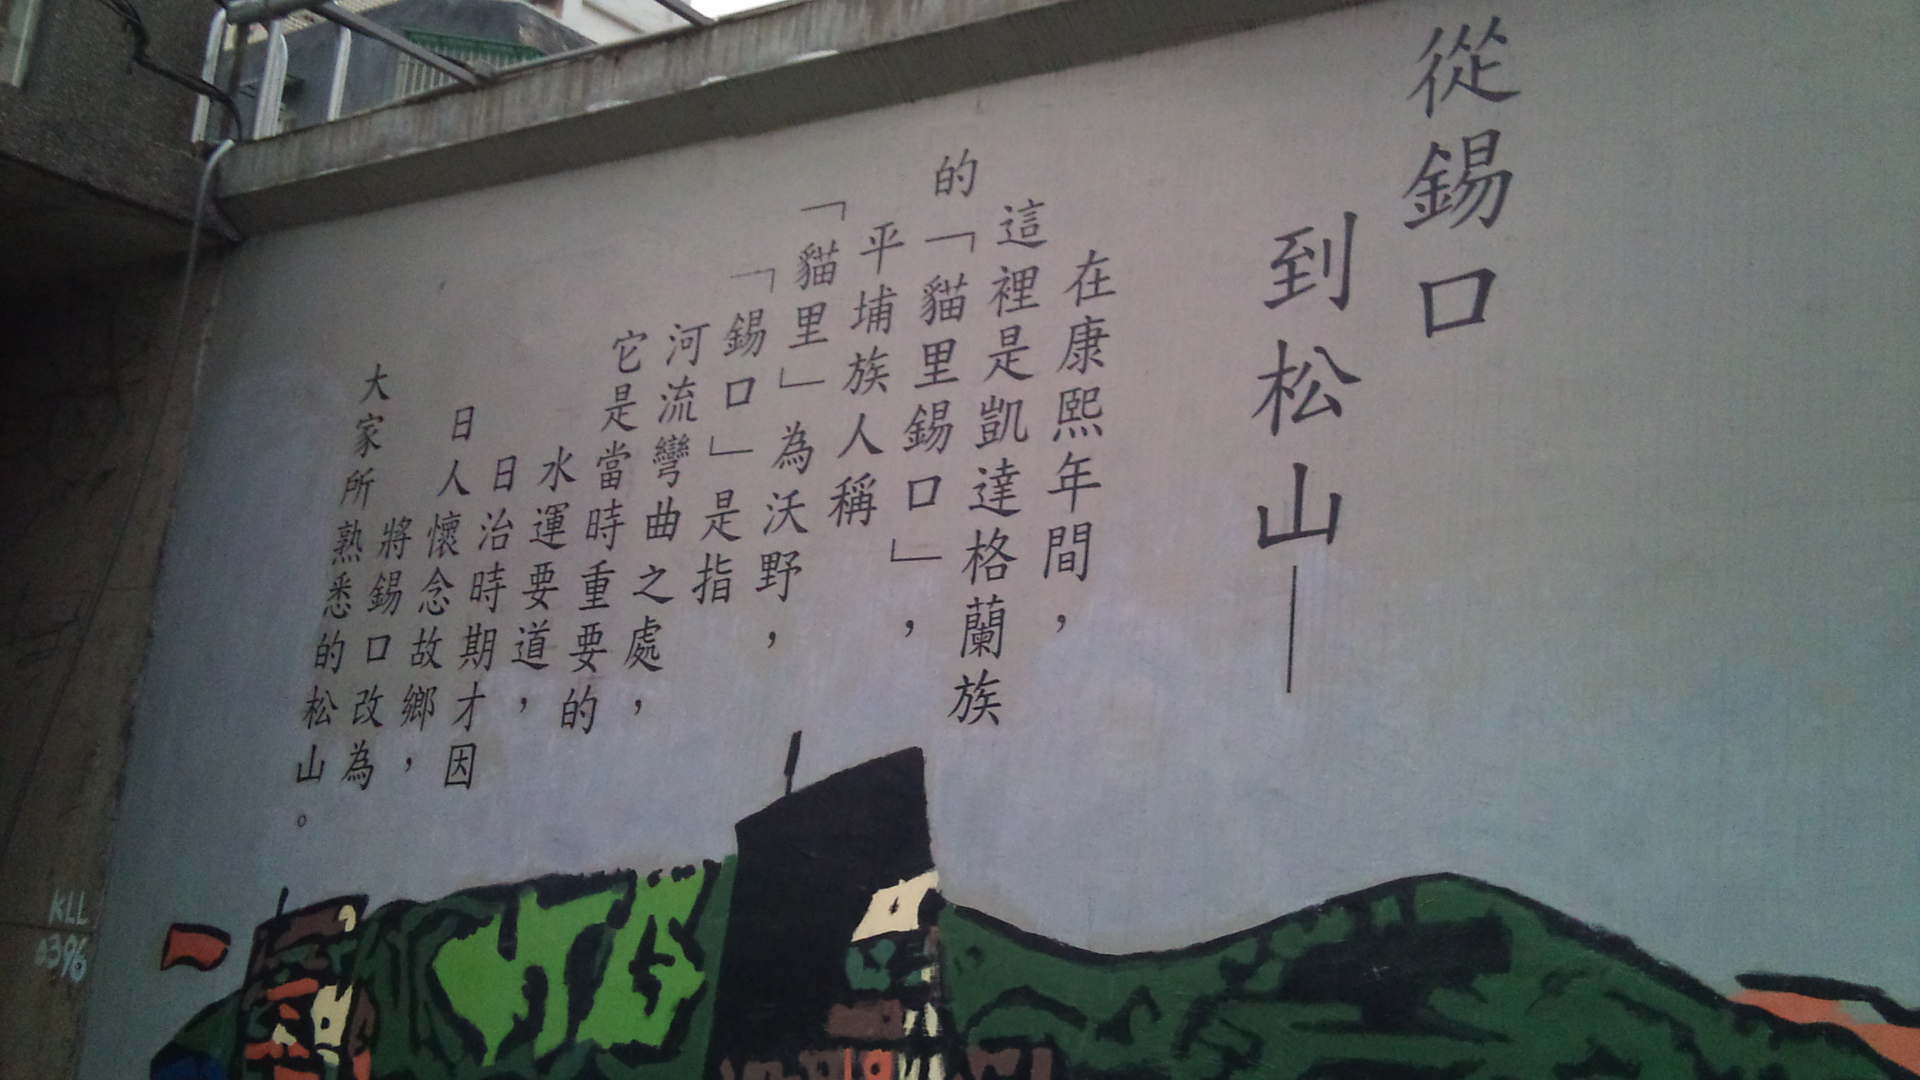 從錫口
到松山—
在康熙年間，
這裡是凱達格蘭族
的「貓里錫口」，
平埔族人稱
「貓里」為沃野，
「錫口」是指
河流彎曲之處，
它是當時重要的
水運要道，
日治時期才因
日人懷念故鄉，
將錫口改為
大家所熟悉的松山。
KLL
0396